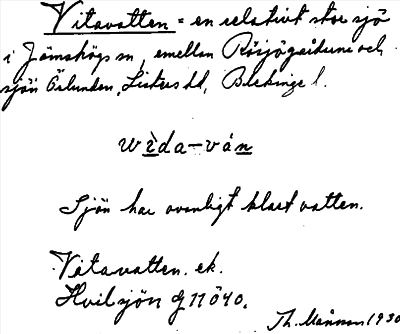 Vitavatten = en relativt stor sjö
i Jämshögs sn, emellan Rösjögaidune och
sjön Örlunden, Listers hd, Blekinge l.
wìda-ván
Sjön har ovanligt klart vatten.
Vitavatten. ek.
Hvilsjön G 11 Ö 40.
Th. Månsson 1930